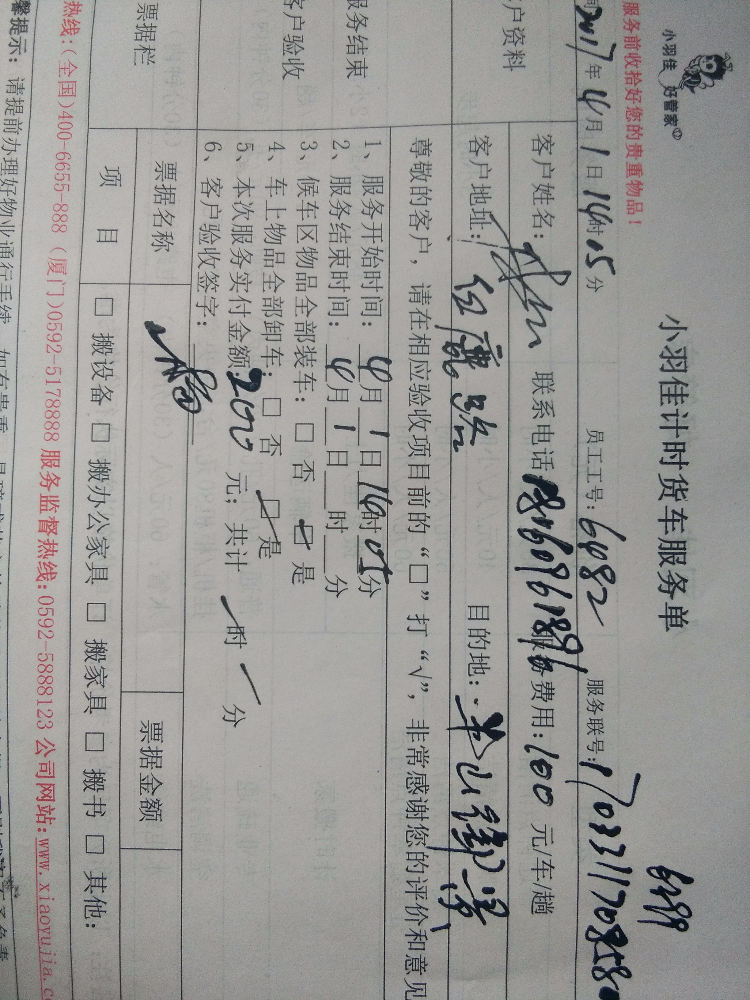 小羽佳 好管家
服务前收拾好您的贵重物品!
小羽佳计时货车服务单
6299
2017年4月1日14时05分 员工工号:6482 服务联号:
户资料 客户姓名: 联系电话 服务费用:100元/车/趟
客户地址: 目的地:
尊敬的客户,请在相应验收项目前的“□”打“√”,非常感谢您的评价和意见
服务结束
客户验收
1、服务开始时间:4月1日16时05分
2、服务结束时间:4月1日 时 分
3、候车区物品全部装车:□ 否 ☑ 是
4、车上物品全部卸车:□ 否 ☑ 是
5、本次服务实付金额:200 元;共计 时 分
6、客户验收签字:
票据栏 票据名称 票据金额
项目 □ 搬设备 □ 搬办公家具 □ 搬家具 □ 搬书 □ 其他:
热线:(全国)400-6655-888 (厦门)0592-5178888 服务监督热线:0592-5888123 公司网站:www.xiaoyujia.c
馨提示:请提前办理好物业通行手续,如有贵重